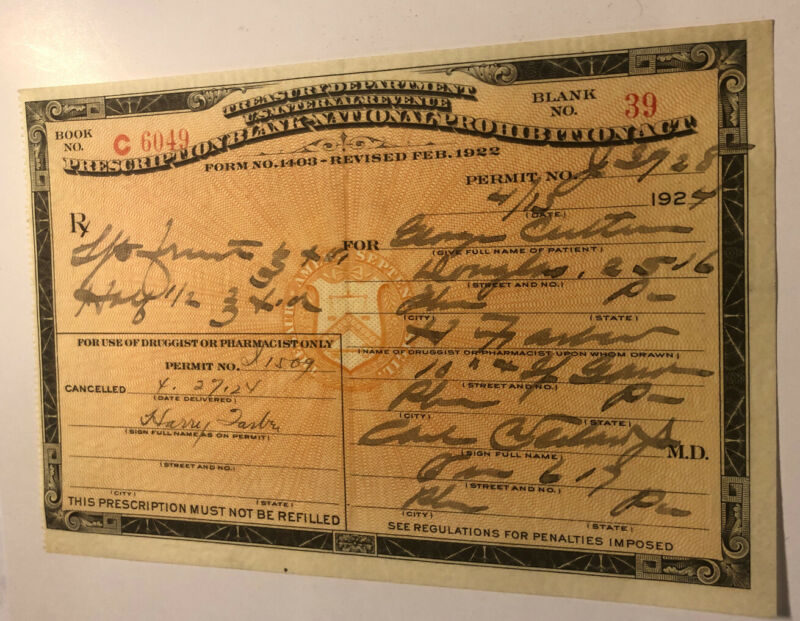 TREASURY DEPARTMENT
U.S. INTERNAL REVENUE
PRESCRIPTION BLANK-NATIONAL PROHIBITION ACT
FORM NO. 1403-REVISED FEB. 1922
BOOK NO. C 6049
BLANK NO. 39
PERMIT NO.
4/15 1924
(DATE)
℞
FOR George
(GIVE FULL NAME OF PATIENT)
Douglas, 2516
(STREET AND NO.)
Pa
(CITY) (STATE)
H Farber
(NAME OF DRUGGIST OR PHARMACIST UPON WHOM DRAWN)
10" &
(STREET AND NO.)
Pa
(CITY) (STATE)
M.D.
(SIGN FULL NAME)
617
(STREET AND NO.)
Pa
(CITY) (STATE)
SEE REGULATIONS FOR PENALTIES IMPOSED
Half 1/2
FOR USE OF DRUGGIST OR PHARMACIST ONLY
PERMIT NO. 1509
CANCELLED 4.27.24
(DATE DELIVERED)
Harry Farber
(SIGN FULL NAME AS ON PERMIT)
(STREET AND NO.)
(CITY) (STATE)
THIS PRESCRIPTION MUST NOT BE REFILLED